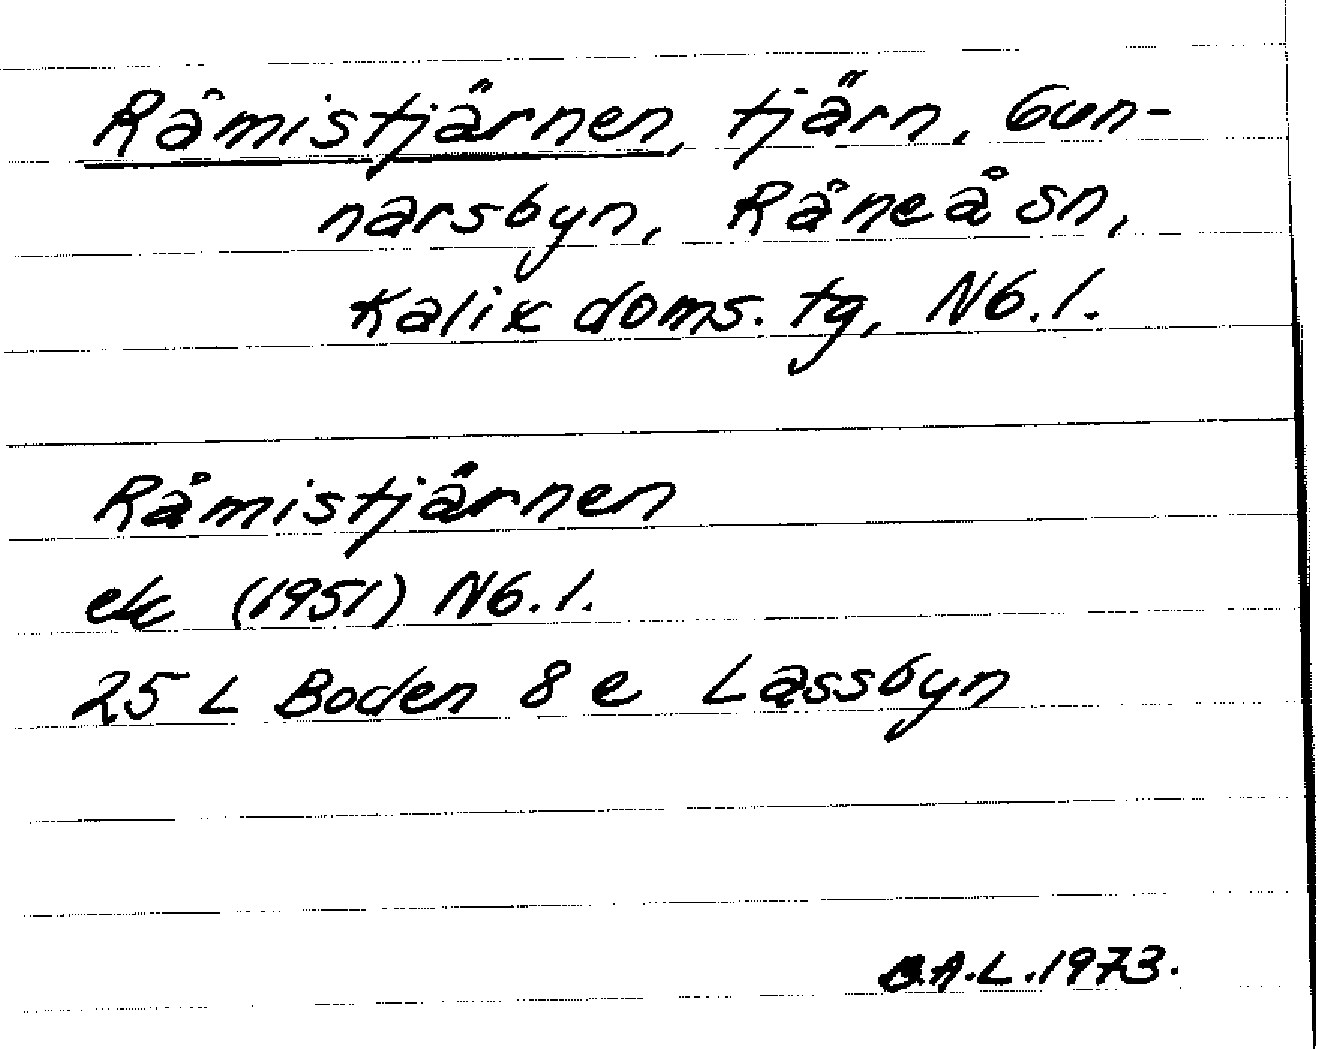 Råmistjärnen, tjärn, Gun-
narsbyn, Råneå sn,
Kalix doms. tg, Nb. l.
Råmistjärnen
ek (1951) Nb. l.
25 L Boden 8 e Lassbyn
B.A.L. 1973.